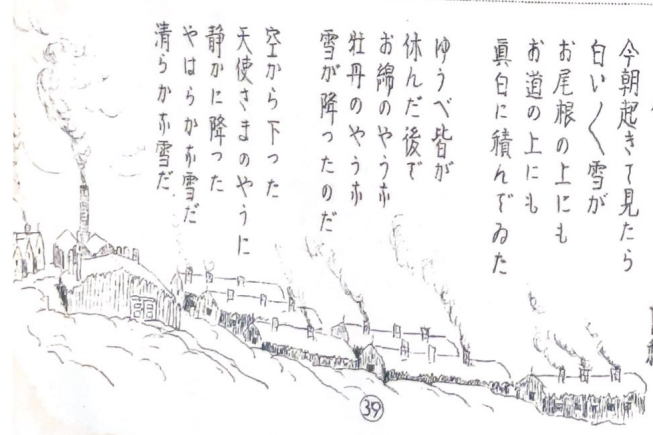 今朝起きて見たら
白い〳〵雪が
お尾根の上にも
お道の上にも
眞白に積んでゐた
ゆうべ皆が
休んだ後で
お綿のやうな
牡丹のやうな
雪が降ったのだ
空から下った
天使さまのやうに
静かに降った
やはらかな雪だ
清らかな雪だ.
39